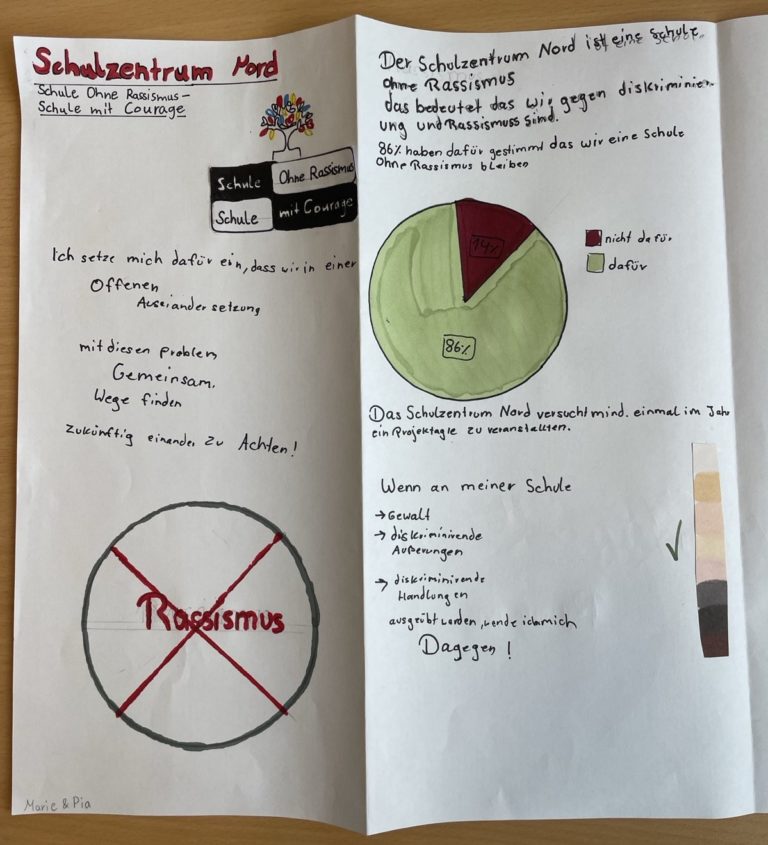 Schulzentrum Nord
Schule Ohne Rassismus -
Schule mit Courage
Schule Ohne Rassismus
Schule mit Courage
Ich setze mich dafür ein, dass wir in einer
Offenen
Auseiander setzung
mit diesen Problem
Gemeinsam,
Wege finden
Zukünftig einander zu Achten!
Rassismus
Marie & Pia
Der Schulzentrum Nord ist eine Schule
ohne Rassismus
das bedeutet das wir gegen diskriminier-
ung und Rassismuss sind.
86% haben dafür gestimmt das wir eine Schule
Ohne Rassismus bleiben
14%
86%
nicht dafür
dafür
Das Schulzentrum Nord versucht mind. einmal im Jahr
ein Projektage zu veranstallten.
Wenn an meiner Schule
→ Gewalt
→ diskriminirende
Äußerungen
→ diskriminirende
Handlungen
ausgeübt werden, wende ich mich
Dagegen!